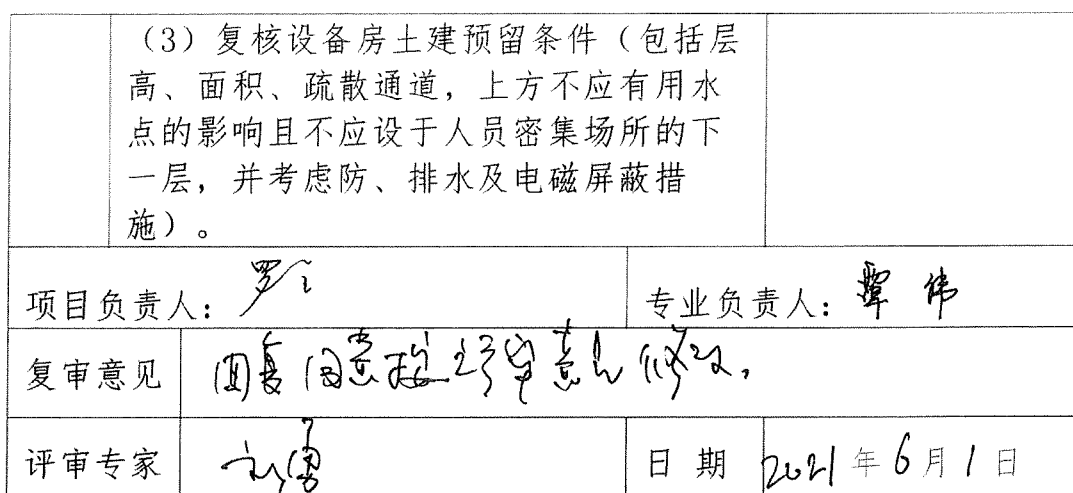 （3）复核设备房土建预留条件（包括层
高、面积、疏散通道，上方不应有用水
点的影响且不应设于人员密集场所的下
一层，并考虑防、排水及电磁屏蔽措
施）。
项目负责人：罗 专业负责人：覃伟
复审意见 回复同意按评审意见修改。
评审专家 日期 2021年6月1日